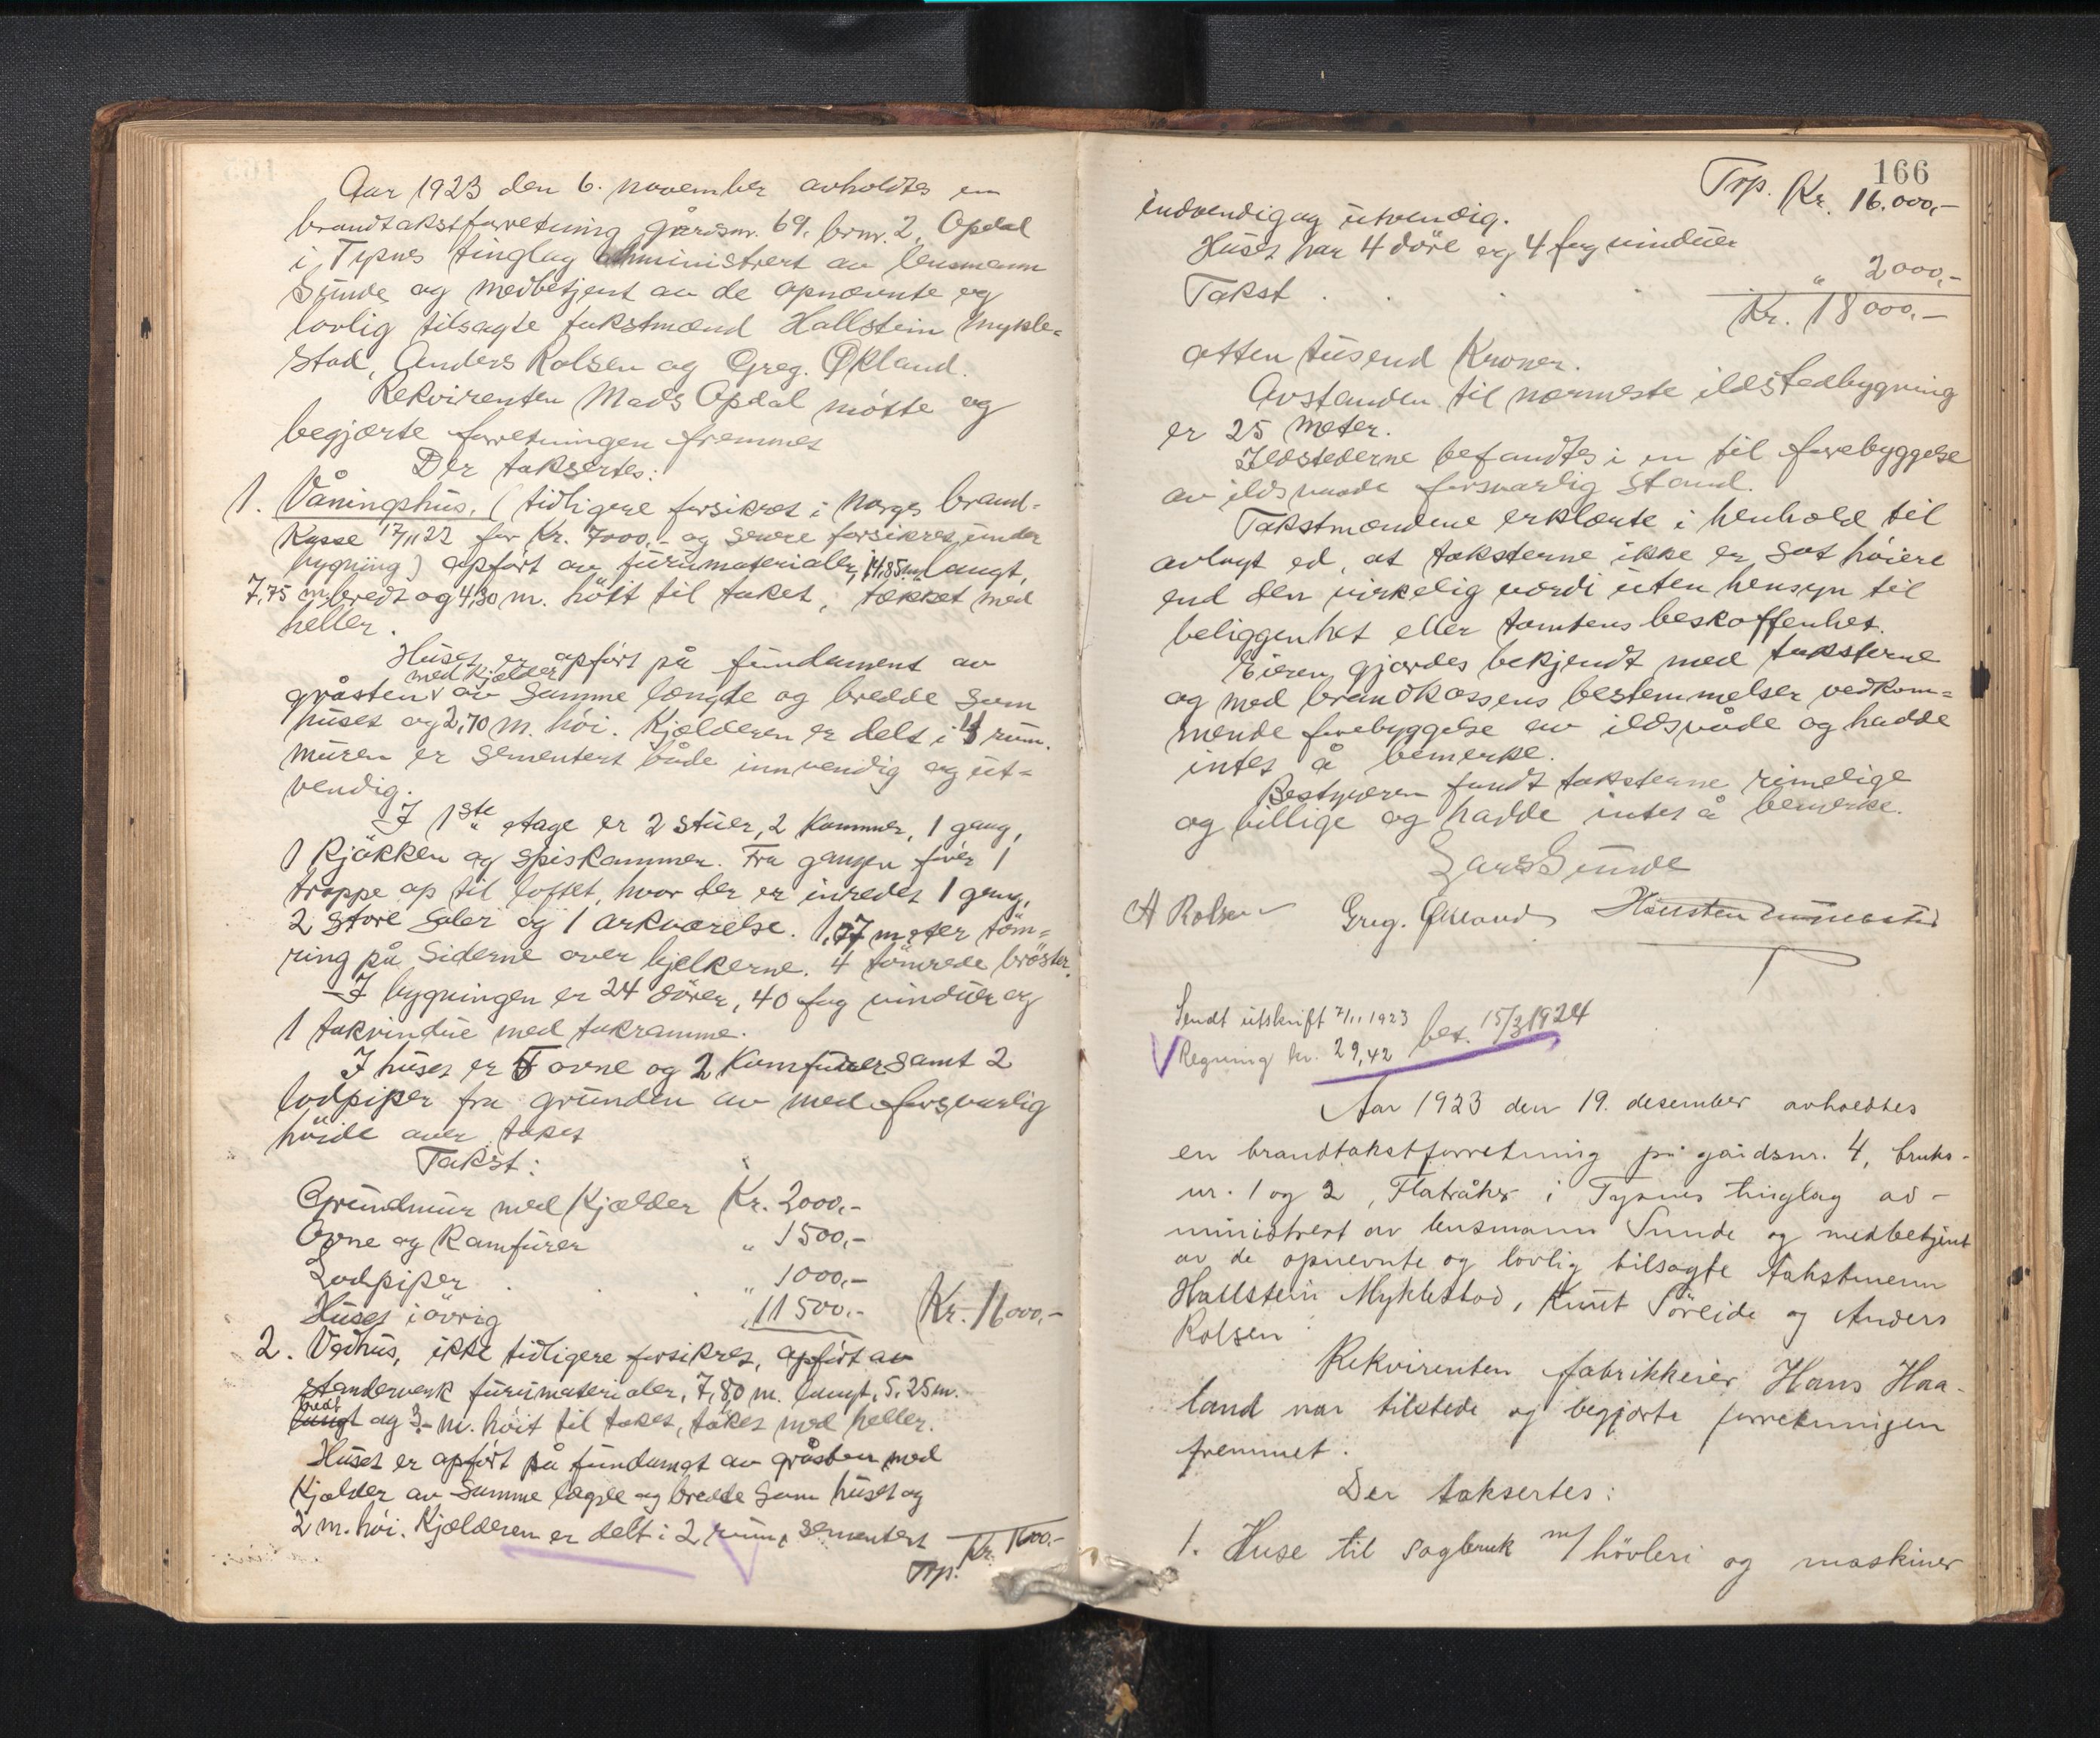 Aar 1923 den 6. november avholdtes en
brandtakstforretning gårdsnr. 69, brnr. 2, Opdal
i Tysnes tinglag administrert av lensmann
Sunde og medbetjent av de opnævnte og
lovlig tilsagte takstmænd Hallstein Mykle=
stad, Anders Rolsen og Greg. Økland.
Rekvirenten Mads Opdal møtte og
begjærte forretningen fremmet
Der taksertes:
1. Våningshus, (tidligere forsikret i Norges brand-
kasse 17/11 22 for Kr. 7000,- og senere forsikret under
bygning) opført av furumaterialer, 14,85 m. langt,
7,75 m. bredt og 4,30 m. höit til taket, tækket med
heller.
Huset er opført på fundament av
gråsten med kjælder av samme længde og bredde som
huset og 2,70 m. høi. Kjælderen er delt i 4 rum.
Muren er sementert både innvendig og ut=
vendig.
I 1ste etage er 2 stuer, 2 kammer, 1 gang,
1 kjökken og spiskammer. Fra gangen fører 1
trappe op til loftet, hvor der er inredet 1 gang,
2 store saler og 1 arkværelse. 1,77 meter töm=
ring på siderne over bjelkerne. 4 tömrede bröster.
I bygningen er 24 dörer, 40 fag vinduer og
1 takvindue med takramme.
I huset er 5 ovne og 2 Komfurer samt 2
lodpiper fra grunden av med forsvarlig
höide over taket
Takst:
Grundmur med Kjælder Kr. 2000,-
Ovne og Komfurer " 1500,-
Lodpiper " 1000,-
Huset i övrig " 11500,- Kr. 16000,-
2. Vedhus, ikke tidligere forsikret, opført av
stenderverk furumaterialer, 7,80 m. langt, 5,25 m.
langt bredt og 3- m. höit til taket, täket med heller.
Huset er opført på fundamet av gråsten med
Kjælder av samme lægde og bredde som huset og
2 m. høi. Kjælderen er delt i 2 rum, sementert
Trp. Kr. 1600.-
166
Trp. Kr. 16.000,-
indvendig og utvendig.
Huset har 4 döre og 4 fag vinduer
Takst . . . " 2000,-
Kr. 18000.-
atten tusend Kroner.
Avstanden til nærmeste ildstedbygning
er 25 meter.
Ildstederne befandtes i en til forebyggelse
av ildsvaade forsvarlig stand.
Takstmændene erklærte i henhold til
avlagt ed, at taksterne ikke er sat høiere
end den virkelig værdi uten hensyn til
beliggenhet eller tomtens beskaffenhet.
Eieren gjordes bekjendt med taksterne
og med brandkassens bestemmelser vedkom=
mende forebyggelse av ildsvåde og hadde
intet å bemerke.
Bestyreren fandt taksterne rimelige
og billige og hadde intet å bemerke.
Lars Sunde
A Rolsen Greg. Økland Hallstein Myklestad
Sendt utskrift 7/11 1923
Regning kr. 29,42 bet. 15/3 1924
Aar 1923 den 19. desember avholdtes
en brandtakstforretning på gårdsnr. 4, bruks-
nr. 1 og 2, Flatråker i Tysnes tinglag ad-
ministrert av lensmann Sunde og medbetjent
av de opnevnte og lovlig tilsagte takstmenn
Hallstein Myklestad, Knut Söreide og Anders
Rolsen
Rekvirenten fabrikkeier Hans Haa-
land var tilstede og begjærte forretningen
fremmet.
Der taksertes:
1. Huse til sagbruk m/ hövleri og maskiner